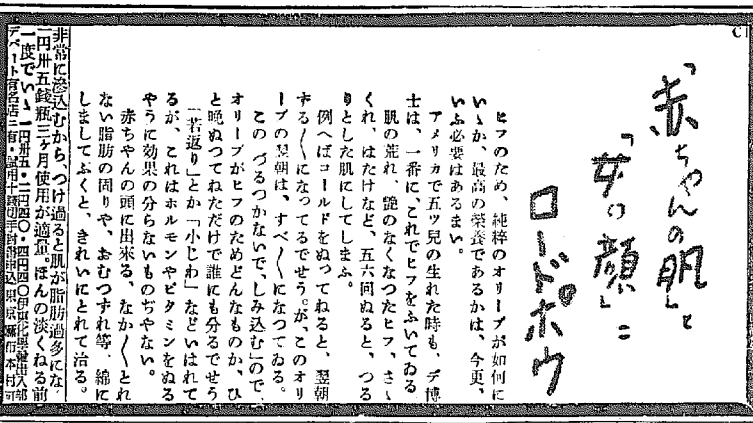 「赤ちやんの肌」と
「女の顔」に
ロードポウ
ヒフのため、純粋のオリーブが如何に
いゝか、最高の榮養であるかは、今更、
いふ必要はあるまい。
アメリカで五ツ兒の生れた時も、デ博
士は、一番に、これでヒフをふいてゐる
肌の荒れ、艶のなくなつたヒフ、さゝ
くれ、はたけなど、五六回ぬると、つる
りとした肌にしてしまふ。
例へばコールドをぬつてねると、翌朝
する〱になつてるでせう。が、このオリ
ーブの翌朝は、すべ〱になつてゐる。
この、づるつかないで、しみ込む」ので、
オリーブがヒフのためどんなものか、ひ
と晩ぬつてねただけで誰にも分るでせう
「若返り」とか「小じわ」などいはれて
るが、これはホルモンやビタミンをぬる
やうに効果の分らないものぢやない。
赤ちやんの頭に出來る、なか〱とれ
ない脂肪の固りや、おむつずれ等、綿に
しましてふくと、きれいにとれて治る。
非常に滲込むから、つけ過ると肌が脂肪過多にな
一円卅五錢瓶三ヶ月使用が適量。ほんの淡くねる前
一度でいゝ 一円卅五・二円四〇・四円四〇伊東化學輸出入部
デパート有名店ニ有・試用十錢切手封書申込 東京